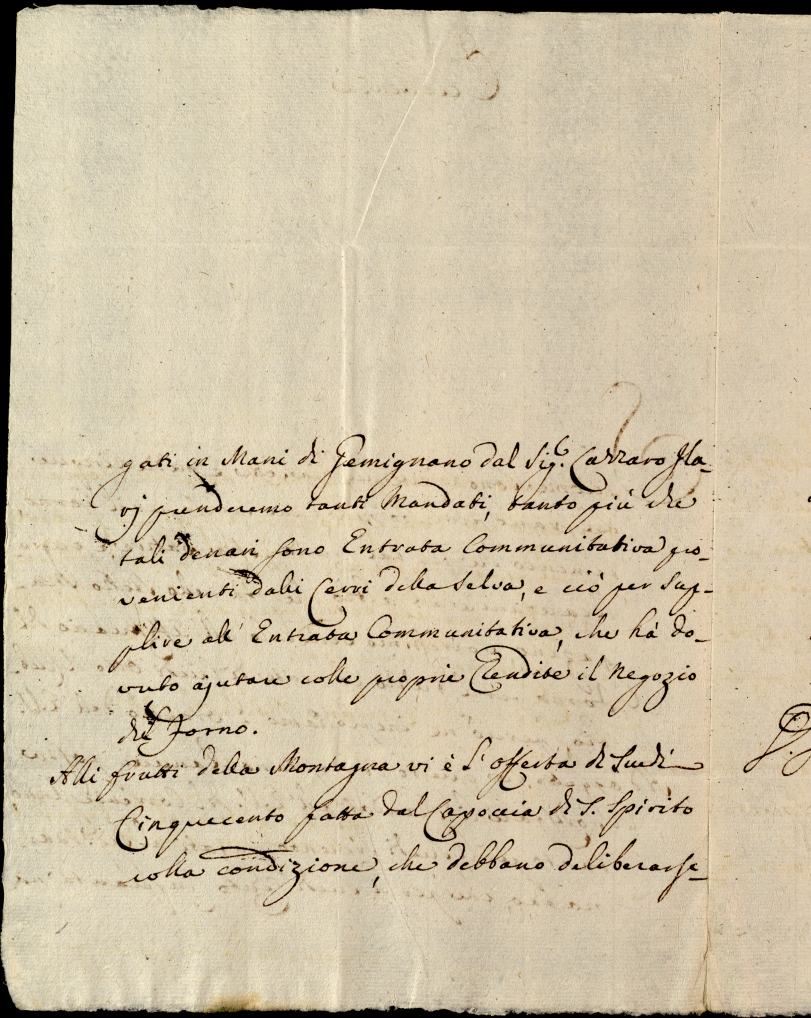 gati in Mani di Gemignano dal Sig.r Lazzaro Ila-
rj prenderemo tanti Mandati, tanto più che
tali denari sono Entrata Communitativa pro-
venienti dalli Cerri della Selva, e ciò per sup-
plire all' Entrata Communitativa, che hà do-
vuto ajutare colle proprie Rendite il negozio
del Forno.
Alli frutti della Montagna vi è l'offerta di Scudi
Cinquecento fatta dal Capoccia di S. Spirito
colla condizione, che debbano deliberarse-